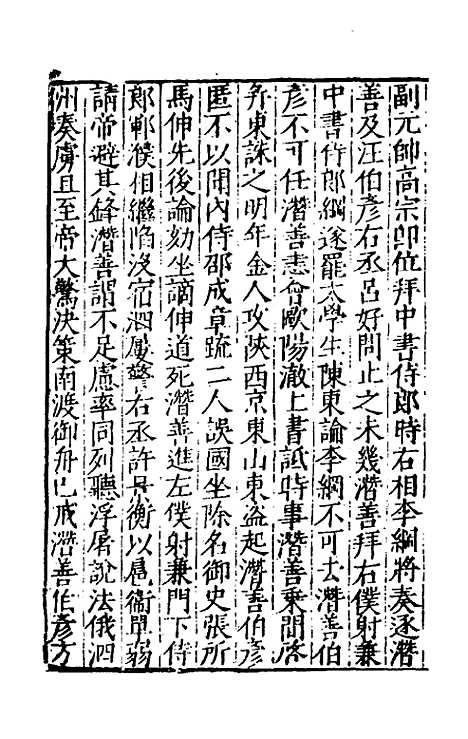 副元帥高宗即位拜中書侍郎時右相李綱將奏逐潛
善及汪伯彦右丞呂好問止之未幾潛善拜右僕射兼
中書侍郎綱遂罷太學生陳東論李綱不可去潛善伯
彦不可任潛善恚會歐陽澈上書詆時事潛善乗間啓
并東誅之明年金人攻陜西京東山東盗起潛善伯彦
匿不以聞内侍邵成章疏二人誤國坐除名御史張所
馬伸先後論劾坐謫伸道死潛善進左僕射兼門下侍
郎鄆濮相繼陷没宿泗屢警右丞許景衡以扈衞單弱
請帝避其鋒潛善謂不足慮率同列聽浮屠說法俄泗
州奏虜且至帝大驚决策南渡御舟已戒潛善伯彦方